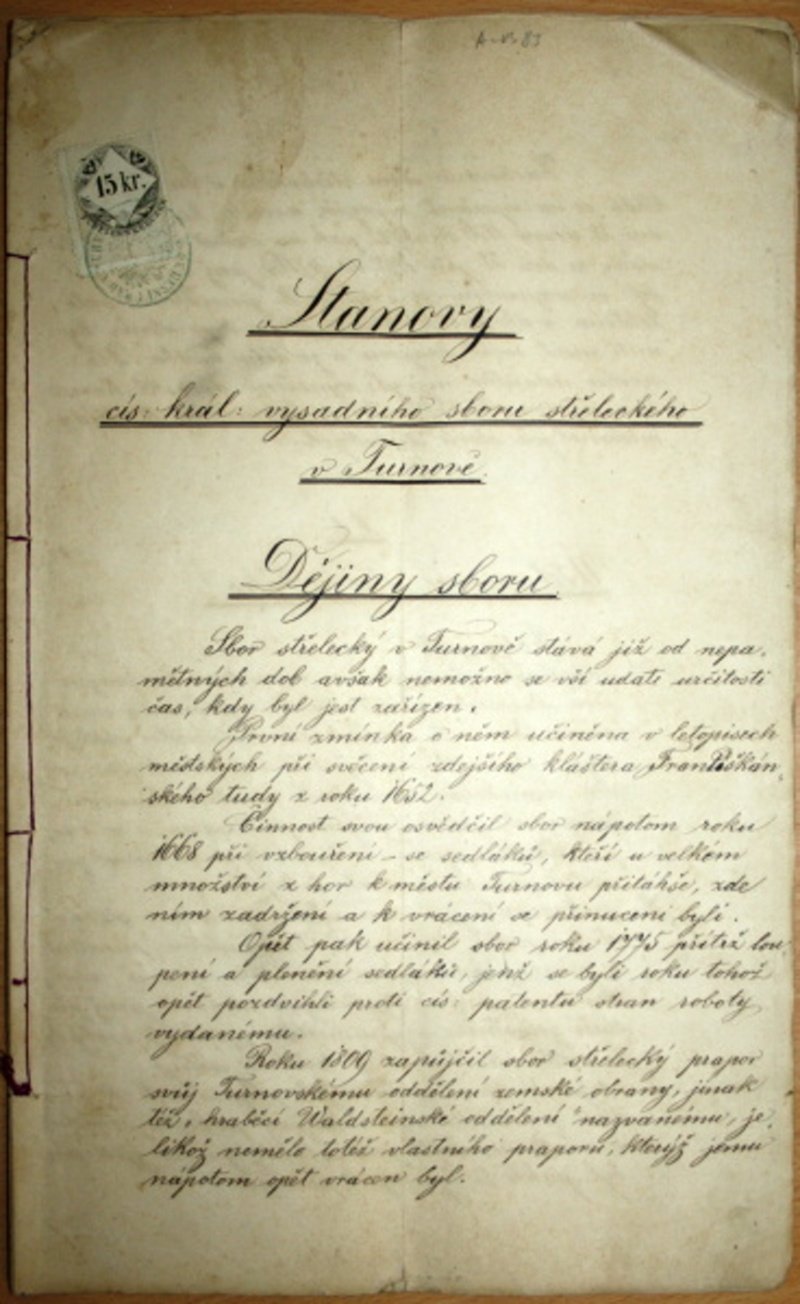 15 kr.
Stanovy
cís: král: vysadního sboru střeleckého
v Turnově.
Dějiny sboru
Sbor střelecký v Turnově stává již od nepa-
mětných dob avšak nemožno se vší udati určitostí
čas, kdy byl jest zařízen.
První zmínka o něm učiněna v letopisech
městských při svěcení zdejšího kláštera Františkán-
ského tudy z roku 1652.
Činnost svou osvědčil sbor nápotom roku
1668 při vzbouření-se sedláků, kteří u velkém
množství z hor k městu Turnovu přitáhše, zde
ním zadržení a k vrácení se přinuceni byli.
Opět pak učinil sbor roku 1775 přítrž lou-
pení a plenění sedláků, jenž se byli roku tohož
opět pozdvihli proti cís: patentu stran roboty
vydanému.
Roku 1809 zapůjčil sbor střelecký prapor
svůj Turnovskému oddělení zemské obrany, jinak
též „hraběcí Waldsteinské oddělení" nazvanému, je-
likož nemělo totéž vlastního praporu, kterýž jemu
nápotom opět vrácen byl.